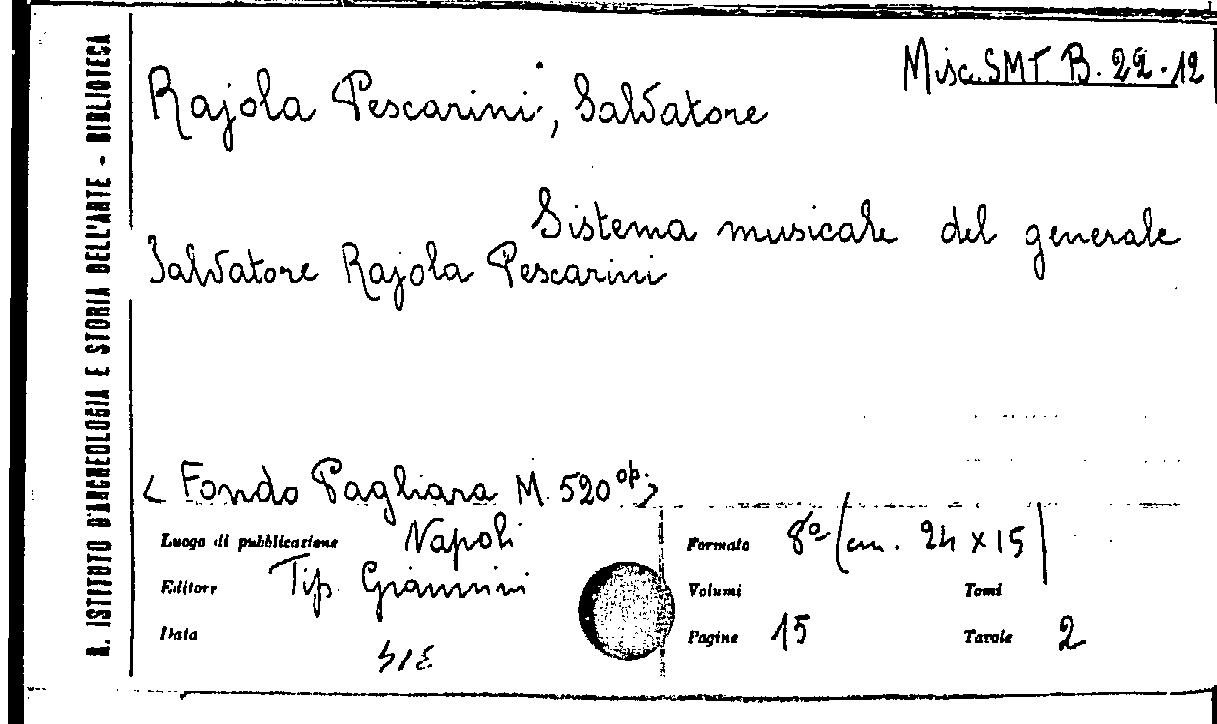 R. ISTITUTO D'ARCHEOLOGIA E STORIA DELL'ARTE - BIBLIOTECA
Misc. SMT B. 22-12
Rajola Pescarini, Salvatore
Sistema musicale del generale
Salvatore Rajola Pescarini
< Fondo Pagliara M. 520 op. >
Luogo di pubblicazione Napoli
Formato 8º (cm. 24 x 15)
Editore Tip. Giannini
Volumi Tomi
Data
Pagine 15 Tavole 2